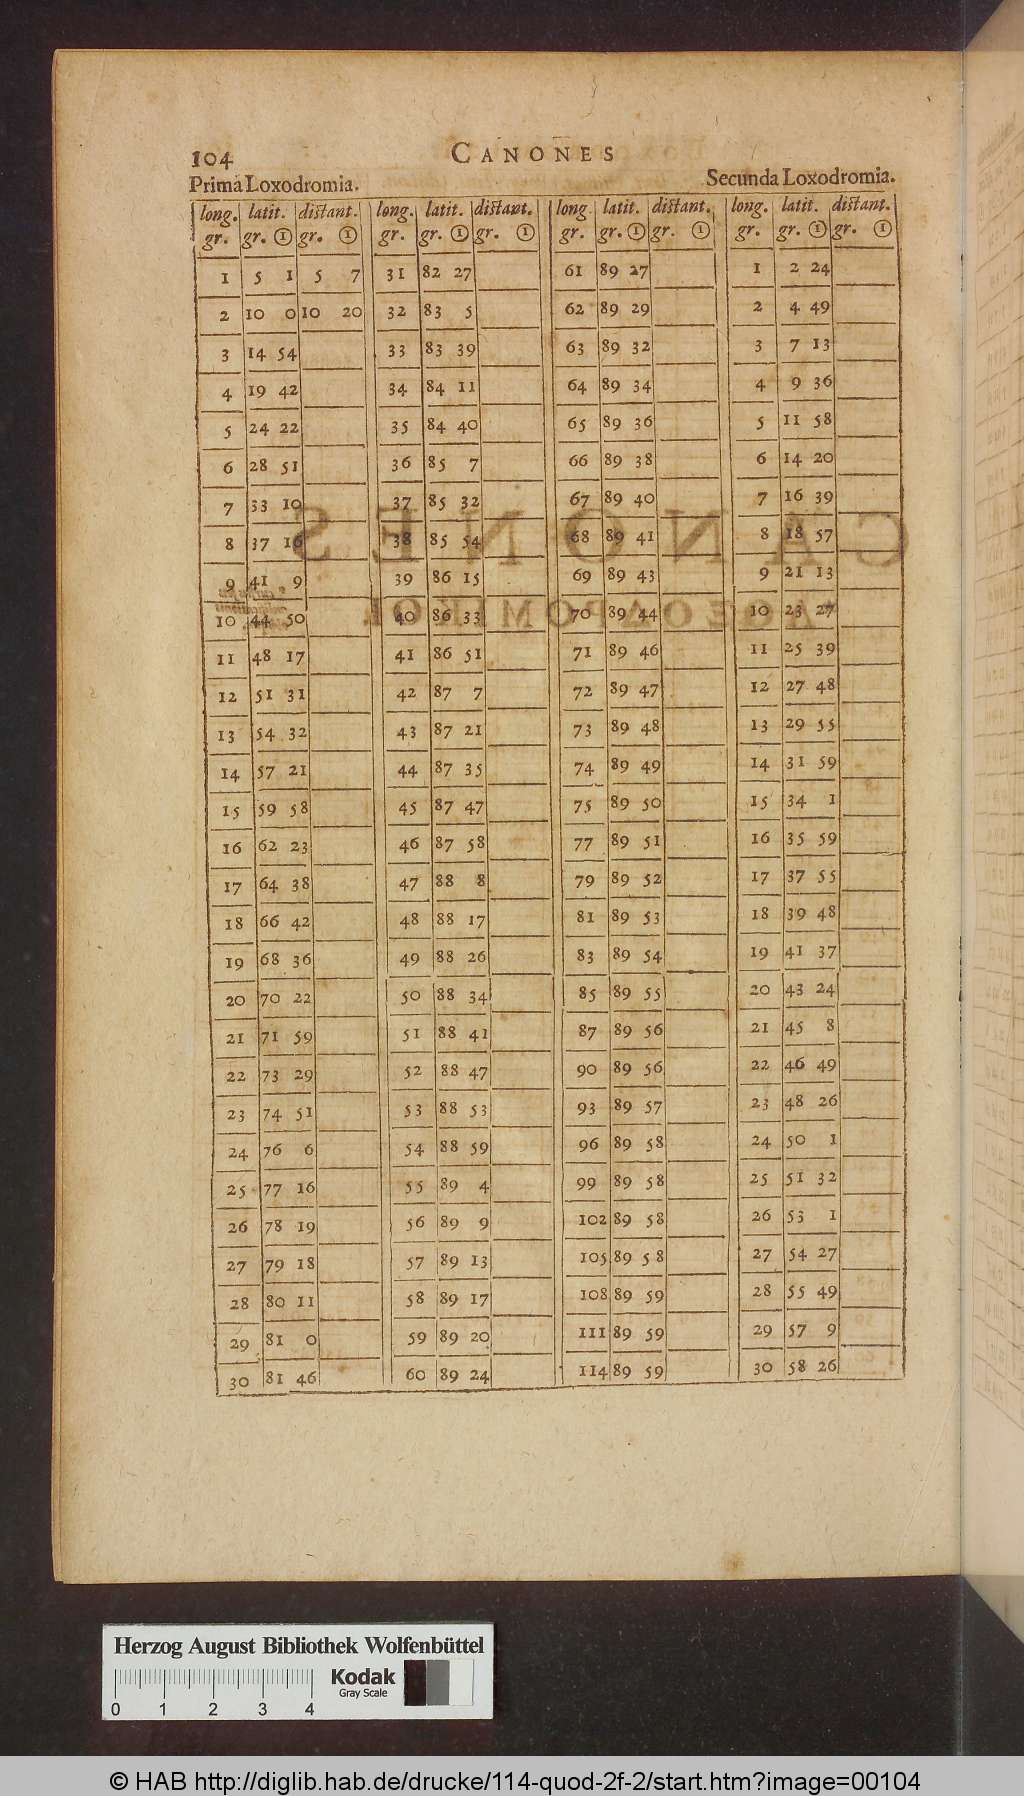 104 CANONES
Prima Loxodromia. Secunda Loxodromia.
long. latit. distant. long. latit. distant. long. latit. distant. long. latit. distant.
gr. gr. ① gr. ① gr. gr. ① gr. ① gr. gr. ① gr. ① gr. gr. ① gr. ①
1 5 1 5 7 31 82 27 61 89 27 1 2 24
2 10 0 10 20 32 83 5 62 89 29 2 4 49
3 14 54 33 83 39 63 89 32 3 7 13
4 19 42 34 84 11 64 89 34 4 9 36
5 24 22 35 84 40 65 89 36 5 11 58
6 28 51 36 85 7 66 89 38 6 14 20
7 33 10 37 85 32 67 89 40 7 16 39
8 37 16 38 85 54 68 89 41 8 18 57
9 41 9 39 86 15 69 89 43 9 21 13
10 44 50 40 86 33 70 89 44 10 23 27
11 48 17 41 86 51 71 89 46 11 25 39
12 51 31 42 87 7 72 89 47 12 27 48
13 54 32 43 87 21 73 89 48 13 29 55
14 57 21 44 87 35 74 89 49 14 31 59
15 59 58 45 87 47 75 89 50 15 34 1
16 62 23 46 87 58 77 89 51 16 35 59
17 64 38 47 88 8 79 89 52 17 37 55
18 66 42 48 88 17 81 89 53 18 39 48
19 68 36 49 88 26 83 89 54 19 41 37
20 70 22 50 88 34 85 89 55 20 43 24
21 71 59 51 88 41 87 89 56 21 45 8
22 73 29 52 88 47 90 89 56 22 46 49
23 74 51 53 88 53 93 89 57 23 48 26
24 76 6 54 88 59 96 89 58 24 50 1
25 77 16 55 89 4 99 89 58 25 51 32
26 78 19 56 89 9 102 89 58 26 53 1
27 79 18 57 89 13 105 89 58 27 54 27
28 80 11 58 89 17 108 89 59 28 55 49
29 81 0 59 89 20 111 89 59 29 57 9
30 81 46 60 89 24 114 89 59 30 58 26
Herzog August Bibliothek Wolfenbüttel
Kodak
Gray Scale
0 1 2 3 4
© HAB http://diglib.hab.de/drucke/114-quod-2f-2/start.htm?image=00104